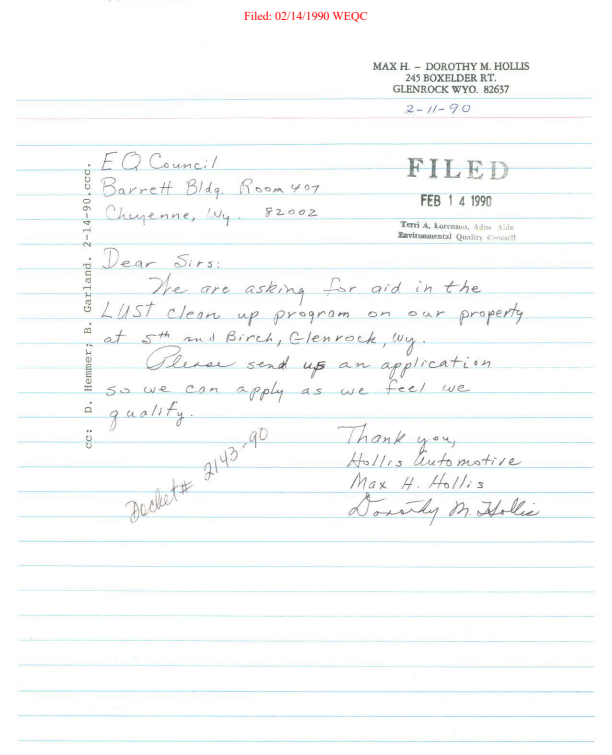 Filed: 02/14/1990 WEQC
MAX H. – DOROTHY M. HOLLIS
245 BOXELDER RT.
GLENROCK WYO. 82637
2-11-90
EQ Council
Barrett Bldg. Room 407
Cheyenne, Wy. 82002
FILED
FEB 14 1990
Terri A. Lorenzon, Adm. Aide
Environmental Quality Council
cc: D. Hemmer; B. Garland. 2-14-90.ccc.
Dear Sirs:
We are asking for aid in the
LUST clean up program on our property
at 5th and Birch, Glenrock, Wy.
Please send us an application
so we can apply as we feel we
qualify.
Thank you,
Hollis Automotive
Max H. Hollis
Dorothy M. Hollis
Docket# 2143-90